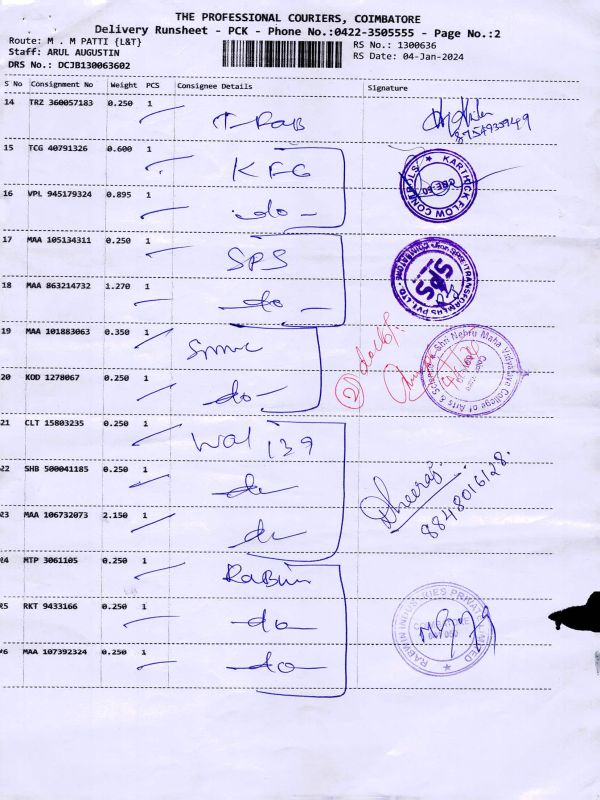 THE PROFESSIONAL COURIERS, COIMBATORE
Delivery Runsheet - PCK - Phone No.:0422-3505555 - Page No.:2
Route: M . M PATTI {L&T}
Staff: ARUL AUGUSTIN
DRS No.: DCJB130063602
RS No.: 1300636
RS Date: 04-Jan-2024
S No Consignment No Weight PCS Consignee Details Signature
14 TRZ 360057183 0.250 1
15 TCG 40791326 0.600 1 KFG
KARTHICK FLOW CONTROLS
16 VPL 945179324 0.895 1 -do-
17 MAA 105134311 0.250 1 SPS
SPS
18 MAA 863214732 1.270 1 -do-
19 MAA 101883063 0.350 1 Snmv
Shri Nehru Maha Vidyalaya College of Arts & Science
20 KOD 1278067 0.250 1 -do-
21 CLT 15803235 0.250 1 Wal 139
22 SHB 500041185 0.250 1 -do-
Dheeraj
8848016128.
23 MAA 106732073 2.150 1 do
24 MTP 3061105 0.250 1 Rabwin
25 RKT 9433166 0.250 1 -do-
RABWIN INDUSTRIES PRIVATE LIMITED
26 MAA 107392324 0.250 1 -do-